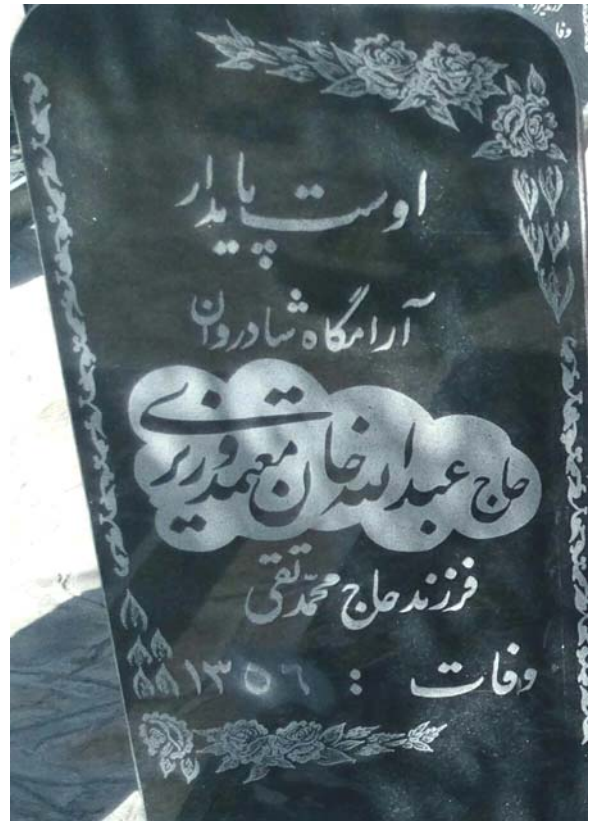 وفا
اوست پایدار
آرامگاه شادروان
حاج عبدالله خان معتمد وزیری
فرزند حاج محمّد تقی
وفات : ۱۳۵۶